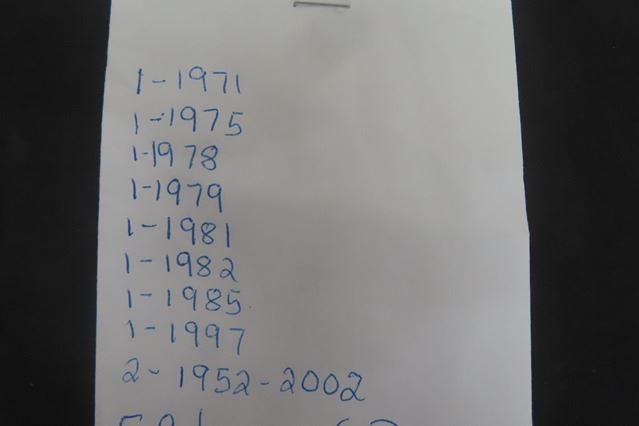 1-1971
1-1975
1-1978
1-1979
1-1981
1-1982
1-1985
1-1997
2-1952-2002